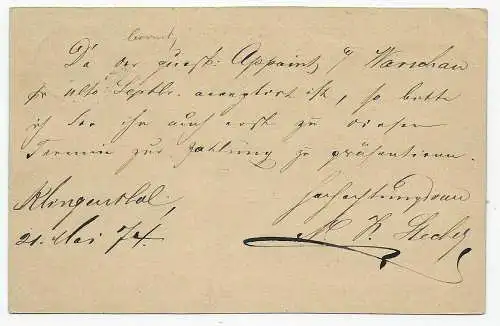 Da der quäst. Appoint a/ Warschau
pr ulto Septbr. acceptirt ist, so bitte
ich Sie ihn auch erst zu diesem
Termin zur Zahlung zu präsentiren.
Klingenthal,
21. Mai 74.
Hochachtungsvoll